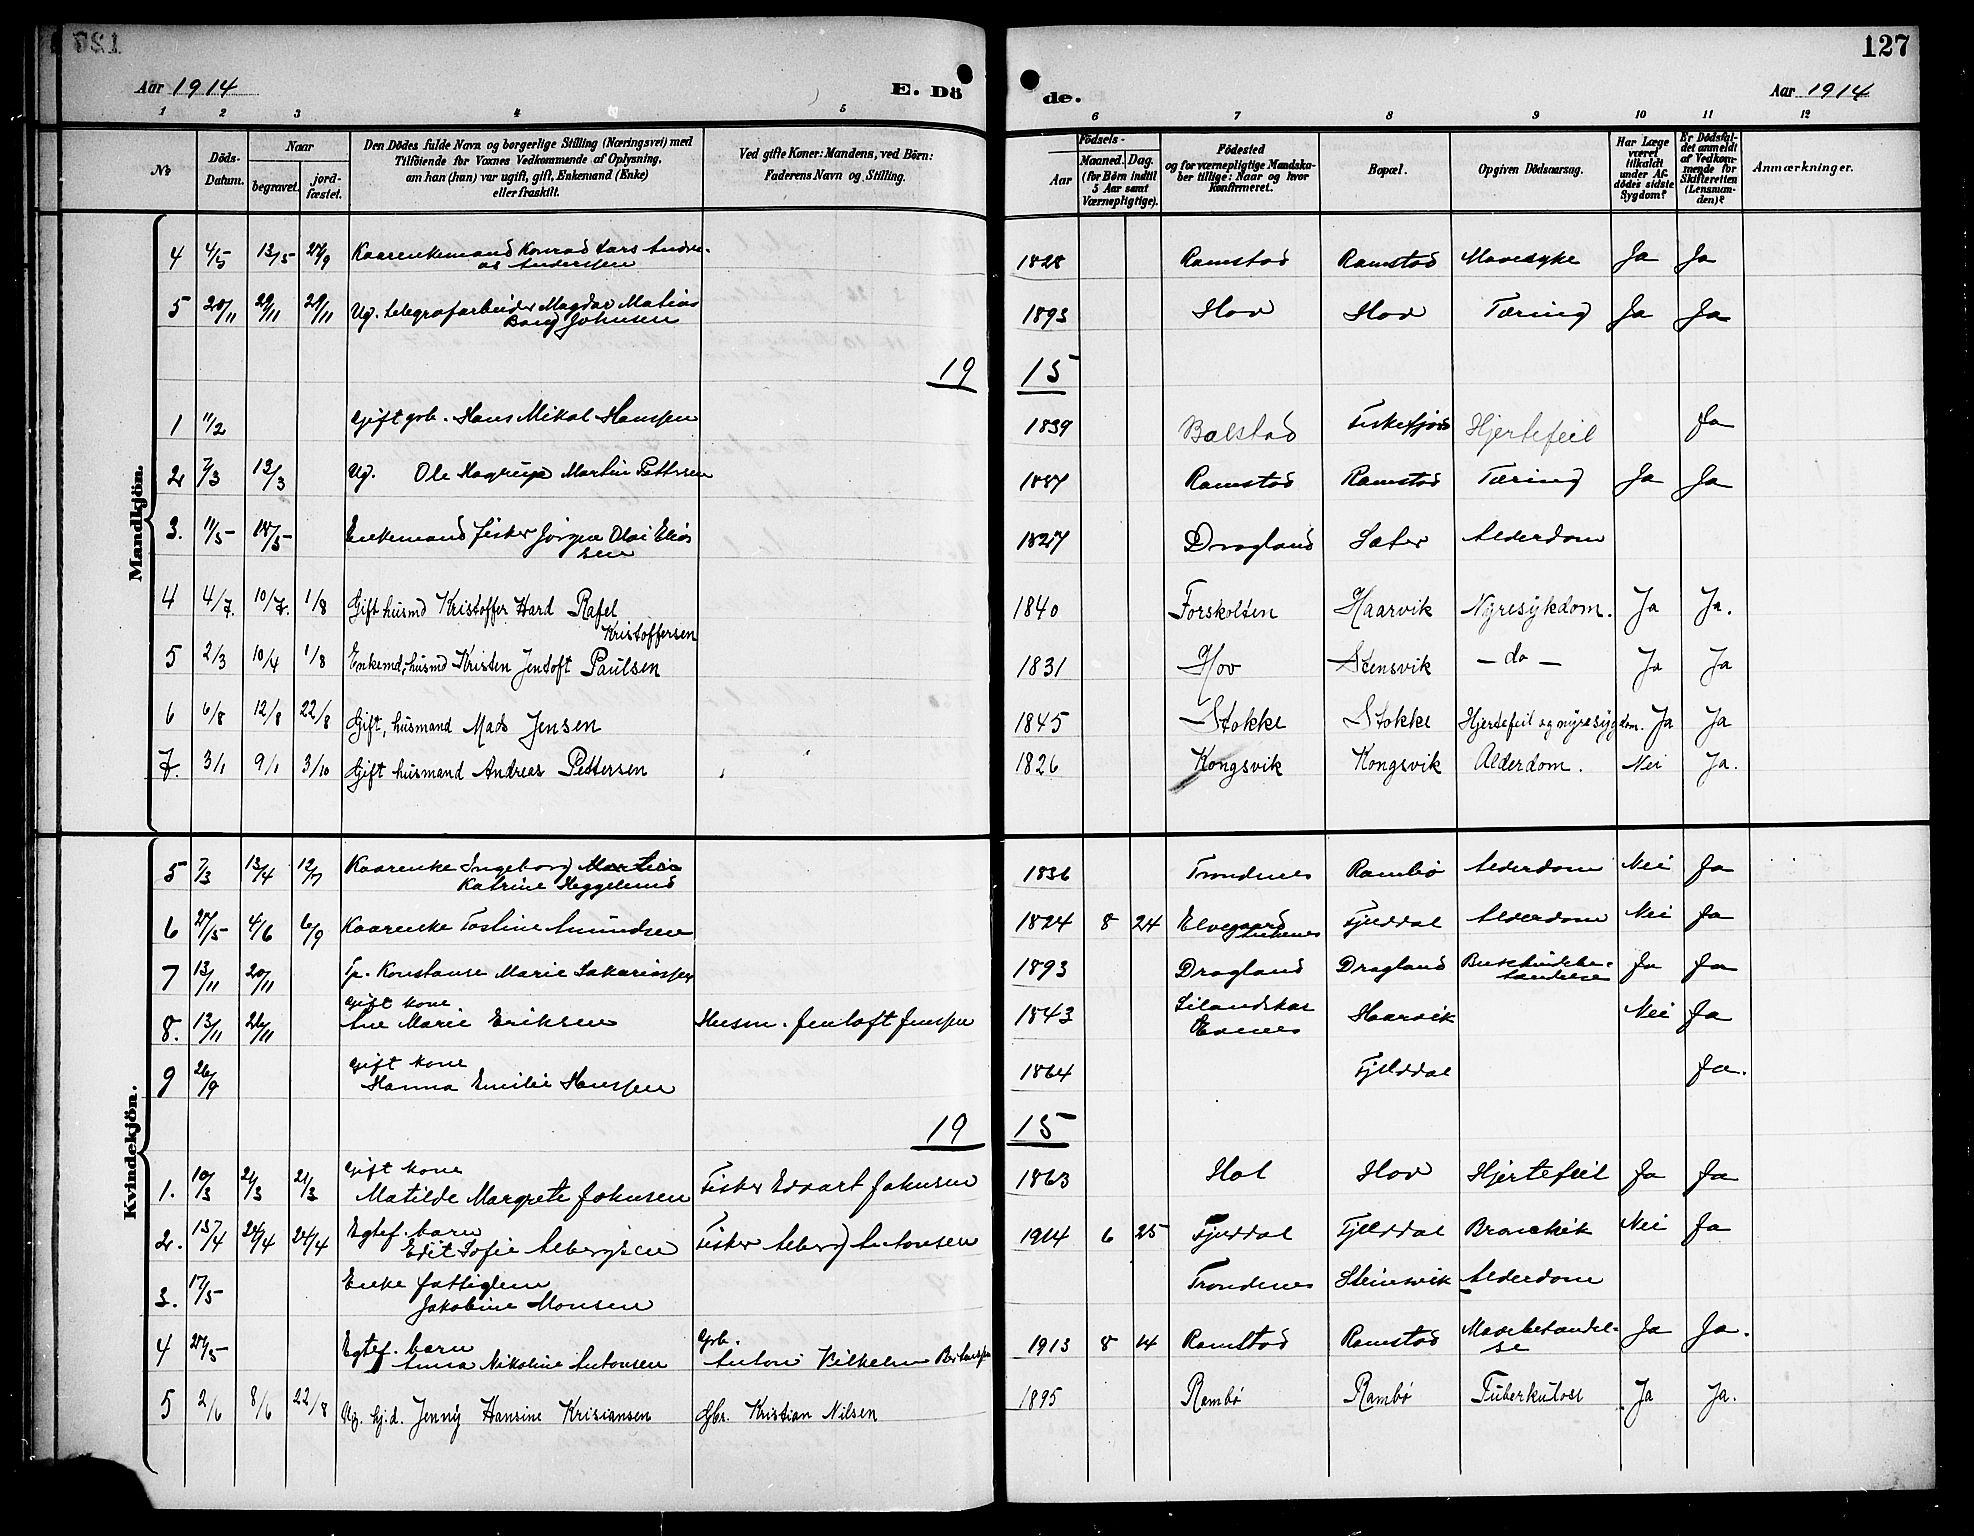 127
Aar 1914
E. Dö
de.
Aar 1914
1 2 3 4 5 6 7 8 9 10 11 12
No
Döds-Datum.
Naar
begravet.
jord-fæstet.
Den Dödes fulde Navn og borgerlige Stilling (Næringsvei) med
Tilföiende for Voxnes Vedkommende af Oplysning,
om han (han) var ugift, gift, Enkemand (Enke)
eller fraskilt.
Ved gifte Koner: Mandens, ved Börn:
Faderens Navn og Stilling.
Födsels-
Aar
Maaned. Dag.
(for Börn indtil
5 Aar samt
Værnepligtige).
Födested
og for værnepligtige Mandska-
ber tillige: Naar og hvor
Konfirmeret.
Bopæl.
Opgiven Dödsaarsag.
Har Læge
været
tilkaldt
under Af-
dödes sidste
Sygdom?
Er Dödsfal-
det anmeldt
af Vedkom-
mende for
Skifteretten
(Lensman-
den)?
Anmærkninger.
Mandkjön.
4 4/5 13/5 27/9 Kaarenkemand Konrad Lars Andre-
as Anderssen 1828 Ramstad Ramstad Mavesyke Ja Ja
5 20/11 29/11 29/11 Ug. telegrafarbeider Magdar Matias
Bang Johnsen 1893 Hov Hov Tæring Ja Ja
19 15
1 11/2 Gift grb. Hans Mikal Hanssen 1839 Balstad Fiskefjord Hjertefeil Ja
2 7/3 13/3 Ug. Ole Hagrup Martin Pettersen 1887 Ramstad Ramstad Tæring Ja Ja
3. 11/5 18/5 Enkemand fisker Jörgen Olai Elias
sen 1827 Dragland Sæter Alderdom
4 4/7 10/7. 1/8 Gift husmd Kristoffer Hard Rafel
Kristoffersen 1840 Forskolten Haarvik Nyresykdom. Ja Ja.
5 2/3 10/4 1/8 Enkemd, husmd Kristen Jentoft Paulsen 1831 Hov Stensvik – do – Ja Ja
6 6/8 12/8 22/8 Gift, husmand Mads Jensen 1845 Stokke Stokke Hjertefeil og nyresygdom. Ja Ja
7. 3/1 9/1 3/10 Gift husmand Andreas Pettersen 1826 Kongsvik Kongsvik Alderdom. Nei Ja.
Kvindekjön.
5 7/3 13/4 12/7 Kaarenke Ingeborg
Katrine Heggelund 1836 Trondenes Rambö Alderdom Nei Ja
6 27/5 4/6 6/9 Kaarenke Tostine Amundsen 1824 8 24 Elvegaard
Fjelddal Alderdom Nei Ja
7 13/11 20/11 Konstanse Marie Sakariassen 1893 Dragland Dragland Bukhindebe-
tændelse Ja Ja
8. 13/11 26/11 Gift kone
Ane Marie Eriksen Husm. Jentoft Jenssen 1843 Lilandskar
Evenes Haarvik Nei Ja
9 26/9 Gift kone
Hanna Emilie Hanssen 1864 Fjelddal Ja.
19 15
1. 10/3 21/3 21/3 Gift kone
Matilde Margrete Johnsen Fisker Edvart Johnsen 1863 Hol Hov Hjertefeil Ja Ja
2. 15/4 24/4 24/4 Egtef. barn
Edit Sofie Albergsen Fisker Alberg Antonsen 1914 6 25 Fjelddal Fjelddal Bronchit Nei Ja
3. 17/5 Enke fattiglem
Jakobine Monsen Trondenes Steinsvik Alderdom
4 27/5 Egtef. barn
Anna Nikoline Antonsen Grb.
Anton Vilhelm 1913 8 14 Ramstad Ramstad Mavebetændel-
se Ja Ja.
5 2/6 8/6 22/8 Ug. gj.d. Jenny Hansine Krisiansen Gbr. Kristian Nilsen 1895 Rambö Rambö Tuberkulose Ja Ja.